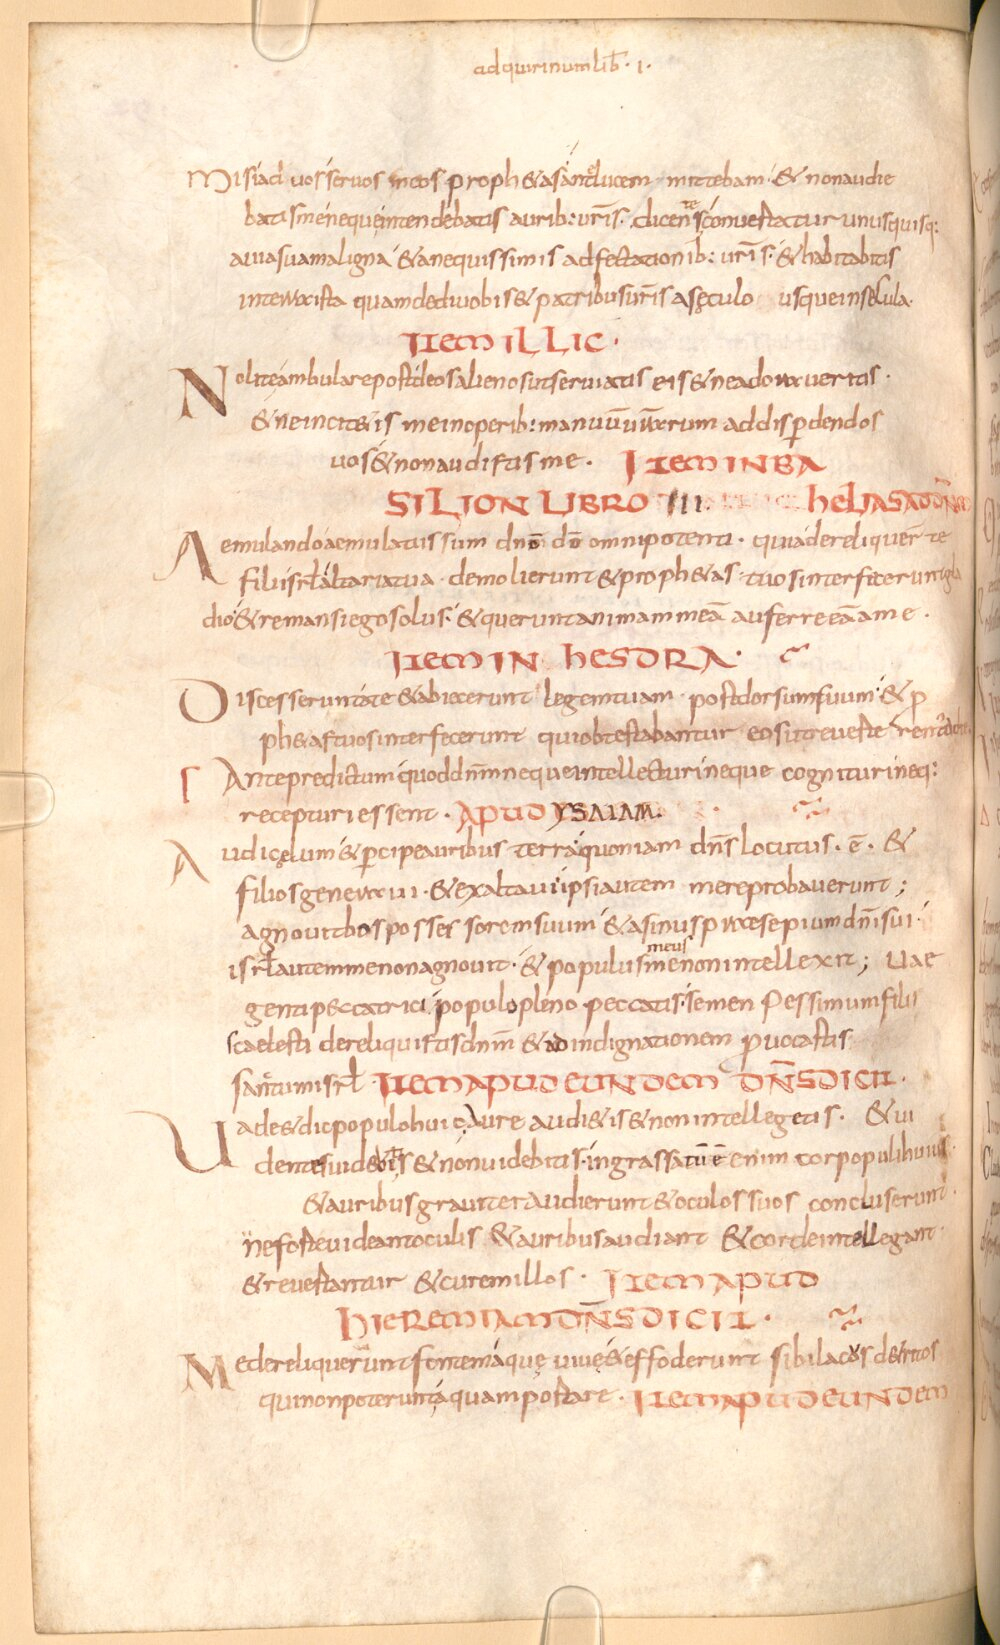 ad quirinum lib̅ · i ·
Misi ad uos seruos meos proph&as ante lucem mittebam · & non audie
batis me neque intendebatis aurib: ur̅is · dicens conuertatur unus quisq:
a uia sua maligna & a nequissimis adfectationib: ur̅is · & habitabitis
in terra ista quam dedi uobis & patribus ur̅is a sęculo usque in sęcula ·
ITEM ILLIC ·
Nolite ambulare post deos alienos ut seruiatis eis & ne adoraueritis ·
& ne incitetis me in operib: manuu̅ ur̅arum ad disperdendos
uos & non audistis me · ITEM IN BA
SILION LIBRO III · HELIAS AD DN̅M
Aemulando aemulatus sum dn̅o d̅o omnipotenti · quia dereliquer̅ te
filii isrl̅ altaria tua · demolierunt & proph&as tuos interfecerunt gla
dio & remansi ego solus · & querunt animam mea̅ auferre ea̅ a me ·
ITEM IN HESDRA ·
Discesserunt a te & abiecerunt legem tuam post dorsum suum · & p
ph&as tuos interfecerunt qui obtestabantur eos ut reuerterentur ad te
Ante predictum quod dn̅m neque intellecturi neque cognituri neq:
recepturi essent · APUD YSAIAM ·
Audi cęlum & percipe auribus terra quoniam dn̅s locutus · e̅ · &
filios generaui · & exaltaui ipsi autem me reprobauerunt ;
agnouit bos possessorem suum & asinus praesepium dn̅i sui ·
isrl̅ autem me non agnouit · & populus meus me non intellexit ; Uae
genti peccatrici populo pleno peccatis · semen pessimum filii
scaelesti dereliquistis dn̅m & ad indignationem prouocastis
sanctum isrl̅ ITEM APUD EUNDEM DN̅S DICIT ·
Uade & dic populo huic Aure audi&is & non intellegetis · & ui
dentes uidebitis & non uidebitis · ingrassatu̅ e̅ enim cor populi huius
& auribus grauiter audierunt & oculos suos concluserunt ·
ne forte uideant oculis & auribus audiant & corde intellegant
& reuertantur & curem illos · ITEM APUD
HIEREMIAM DN̅S DICIT ·
Me dereliquerunt fontem aquę uiuę & effoderunt sibi lacos detritos
qui non poterunt aquam portare · ITEM APUD EUNDEM